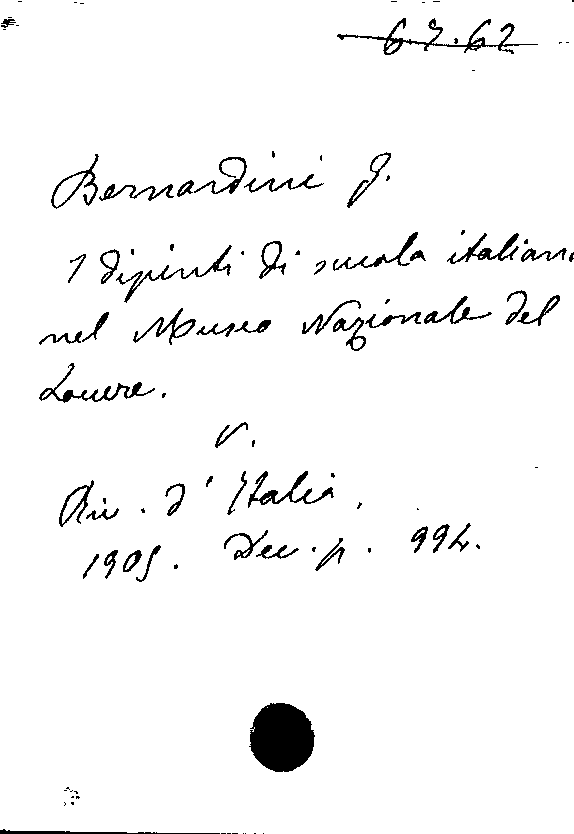 6.7.62
Bernardini G.
I dipinti di scuola italian
nel Museo Nazionale del
Louvre.
V.
Riv. d'Italia.
1905. Dec. p. 994.